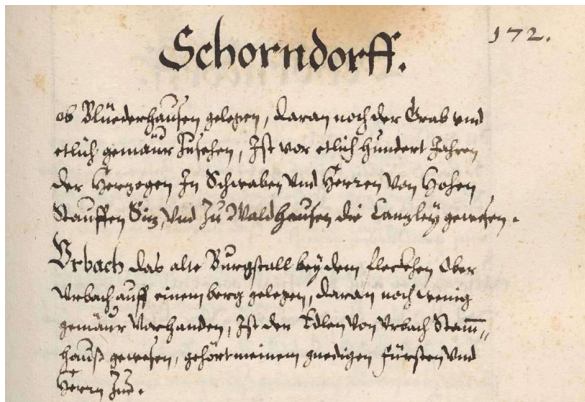 172.
Schorndorff.
ob Plüederhausen gelegen, daran noch der Grab vnd
etlich gemäur Zusehen, Ist vor etlich hundert Jahren
der Herzogen In Schwaben Vnd Herren Von Hohen
Stauffen Siz, Vnd Zu Waldhausen die Canzley gewesen.
Vrbach das alte Burgstall bey dem fleckhen Ober
Vrbach auff einem berg gelegen, daran noch wenig
gemäur Vorhanden, Ist der Edlen Von Vrbach Stam̄=
hauß gewesen, gehört meinem gnedigen Fürsten Vnd
Herrn Zu.